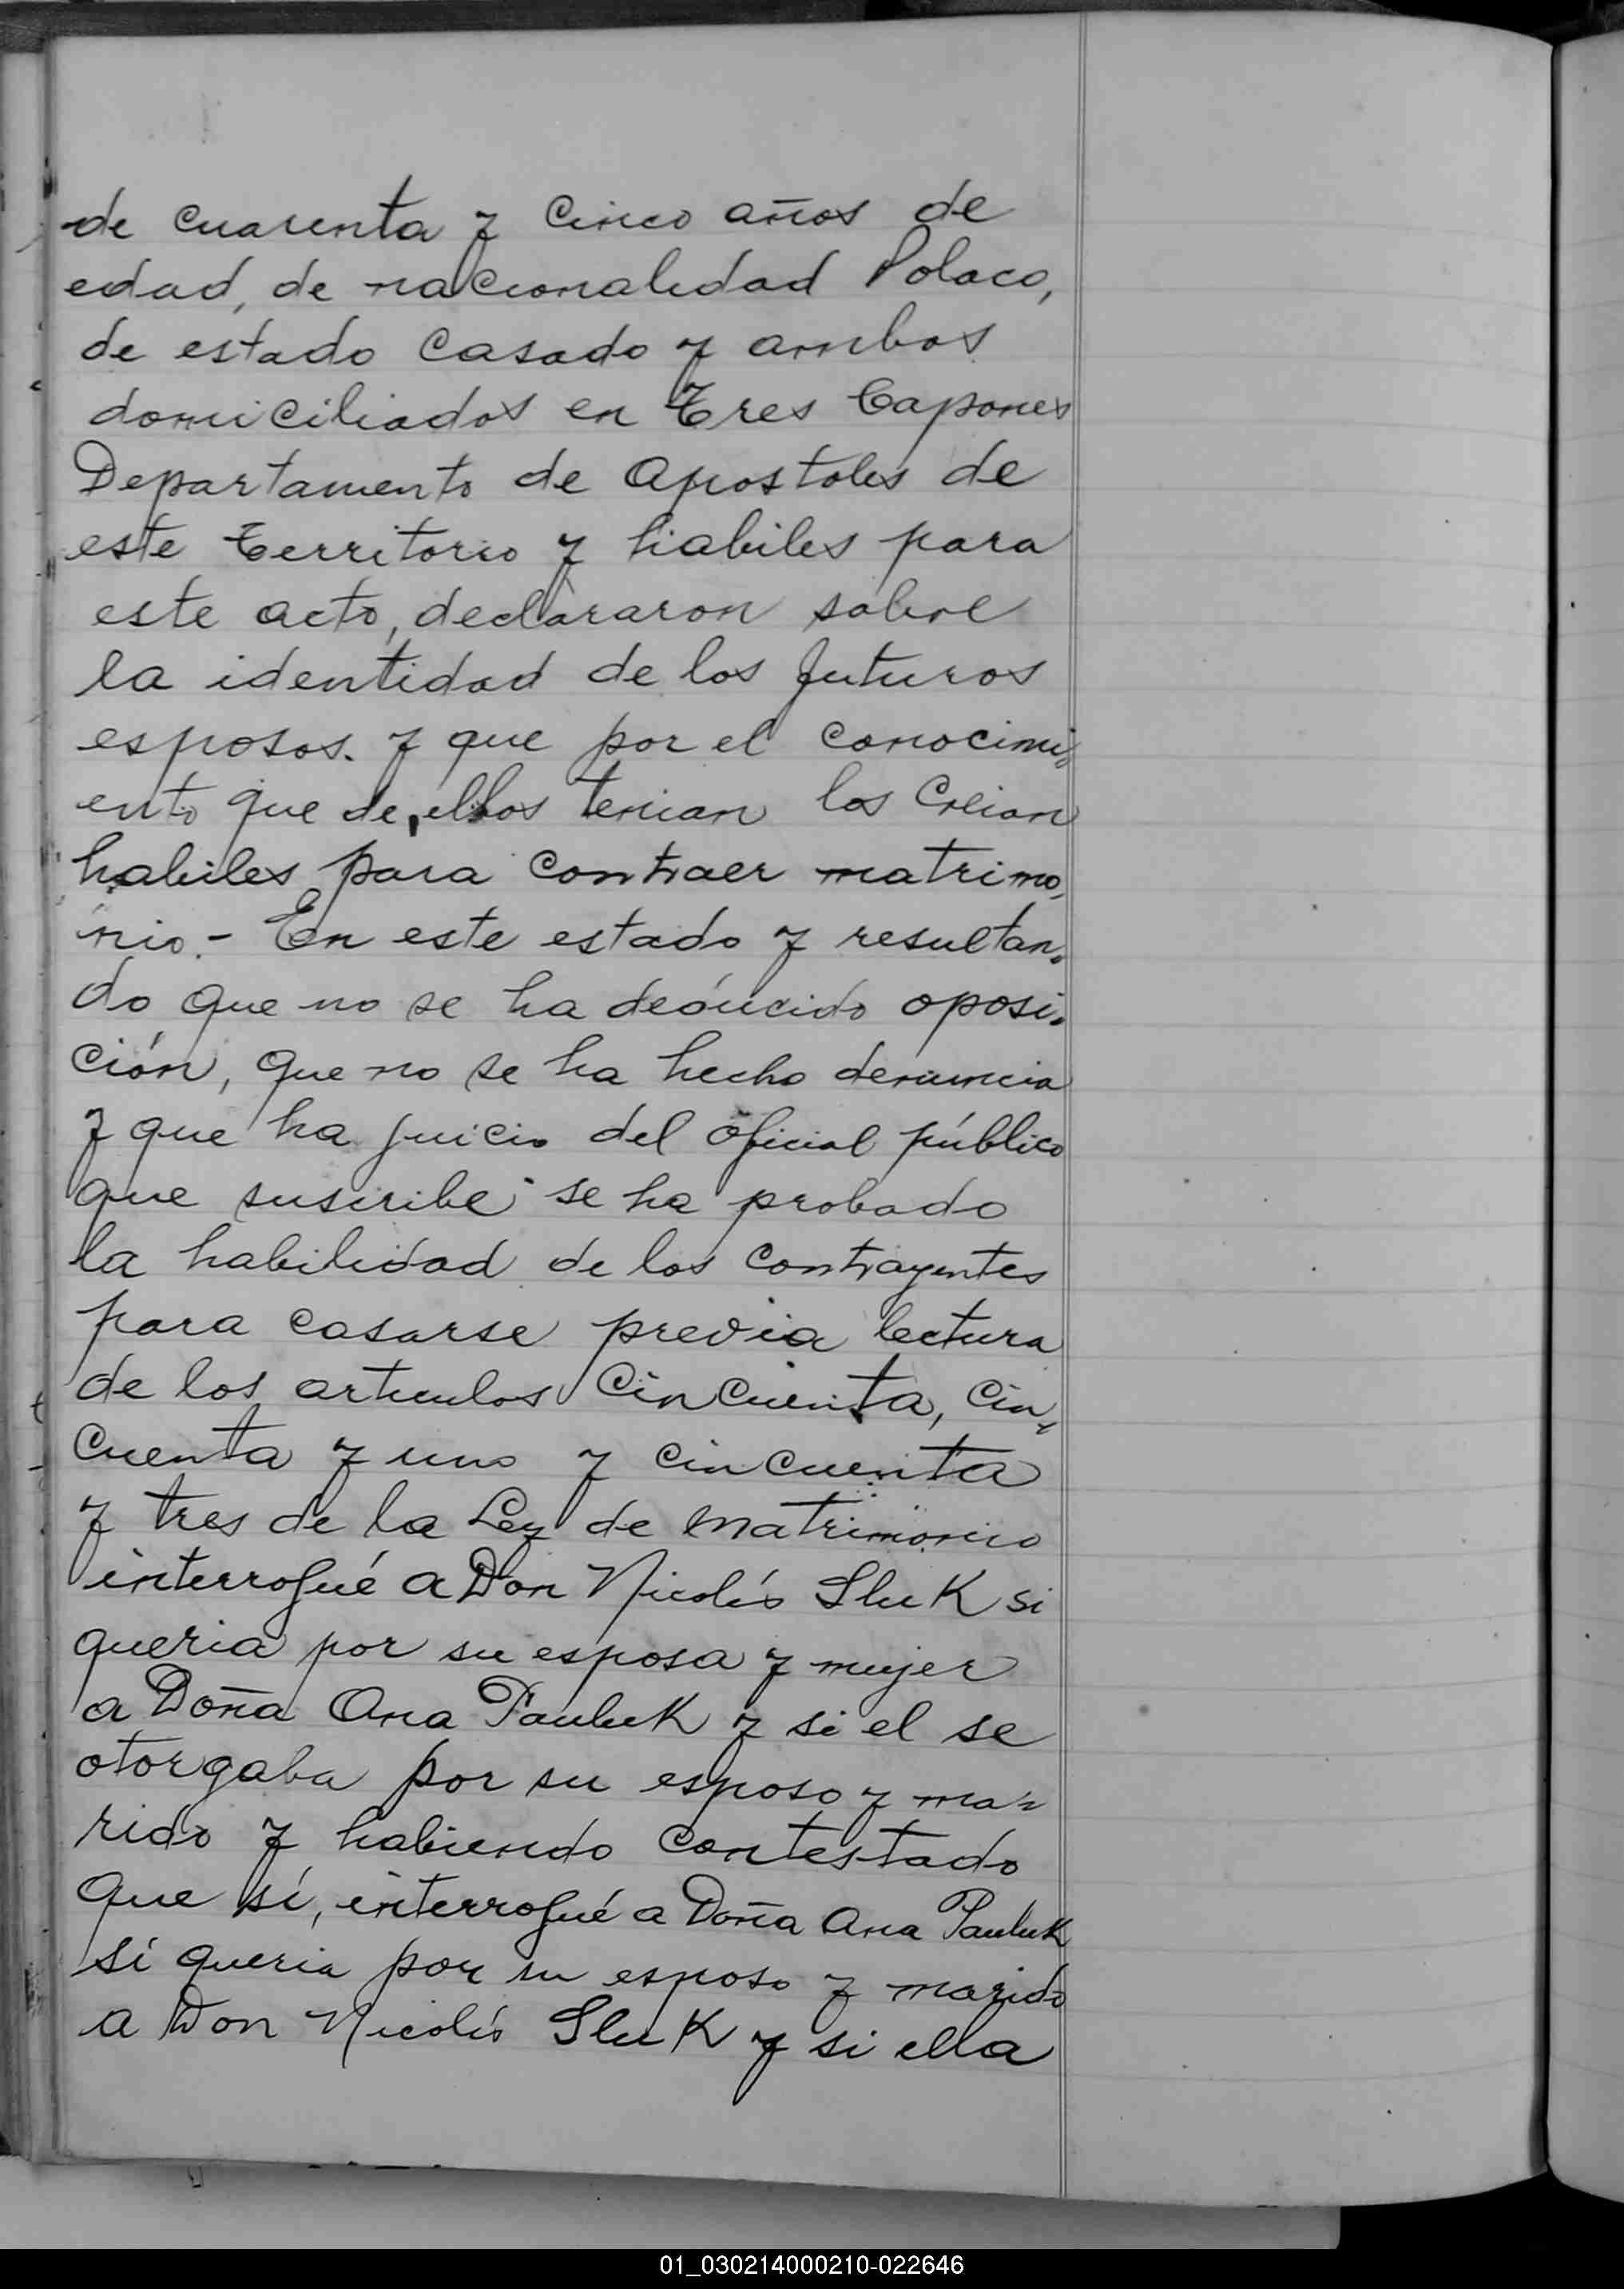 de cuarenta y cinco años de
edad, de nacionalidad Polaco,
de estado casado y ambos
domiciliados en Tres Capones
Departamento de Apostoles de
este territorio y habiles para
este acto, declararon sobre
la identidad de los futuros
esposos. y que por el conocimi,
ento que de ellos tenian los creian
habiles para contraer matrimo,
nio.- En este estado y resultan,
do que no se ha deducido oposi,
ción, que no se ha hecho denuncia
y que ha juicio del oficial público
que suscribe se ha probado
la habilidad de los contrayentes
para casarse previa lectura
de los articulos cincuenta, cin,
cuenta y uno y cincuenta
y tres de la Ley de matrimonio
interrogué a Don Nicolás Sluk si
queria por su esposa y mujer
a Doña Ana Pauluk y si el se
otorgaba por su esposo y ma-
rido y habiendo contestado
que sí, interrogué a Doña Ana Pauluk
si queria por su esposo y marido
a Don Nicolás Sluk y si ella
01_030214000210-022646